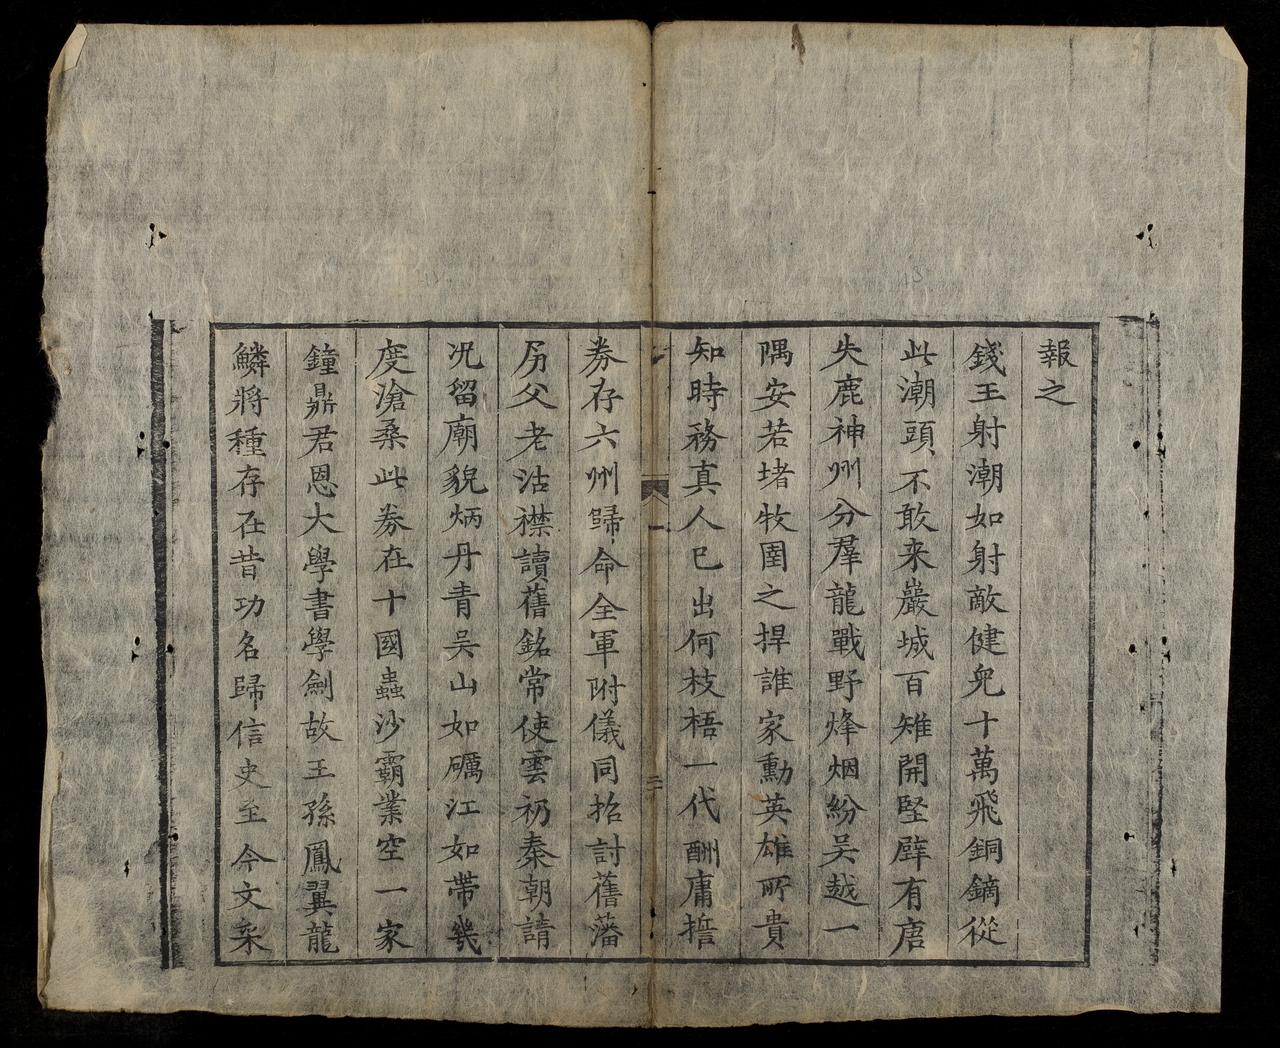 報之
錢王射潮如射敵健兒十萬飛銅鏑從
此潮頭不敢来巖城百雉開堅壁有唐
失鹿神州分羣龍戰野烽烟紛吳越一
隅安若堵牧圉之捍誰家勳英雄所貴
知時務真人已出何枝梧一代酬庸誓
二
券存六州歸命全軍附儀同招討舊藩
父老沾襟讀舊銘常使雲礽奏朝請
况留廟貌炳丹青吳山如礪江如帶幾
度滄桑此券在十國蟲沙霸業空一家
鐘鼎君恩大學書學劍故王孫鳳翼龍
鱗將種存在昔功名歸信史至今文采